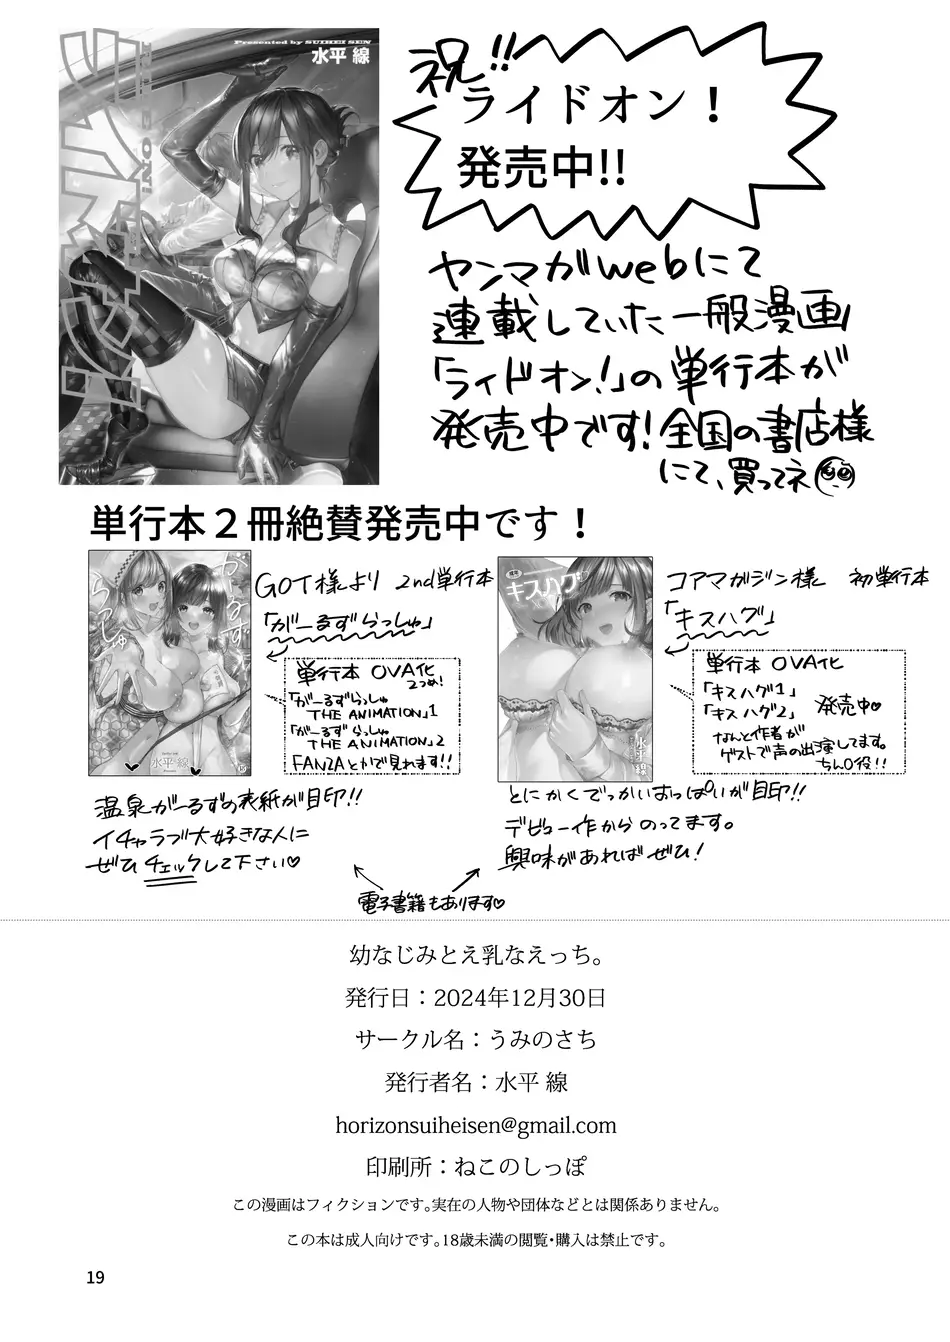 Presented by SUIHEI SEN
水平 線
祝!!
ライドオン！
発売中!!
ヤンマガwebにて
連載していた一般漫画
「ライドオン！」の単行本が
発売中です！全国の書店様
にて、買ってネ
単行本２冊絶賛発売中です！
がーるず
らっしゅ
水平線
GOT様より 2nd単行本
「がーるずらっしゅ」
単行本 OVA化
2つめ！
「がーるずらっしゅ
THE ANIMATION」1
「がーるずらっしゅ
THE ANIMATION」2
FANZAとかで見れます!!
温泉がーるずの表紙が目印!!
イチャラブ大好きな人に
ぜひチェックして下さい♡
キスハグ
水平線
コアマガジン様 初単行本
「キスハグ」
単行本 OVA化
「キスハグ1」
「キスハグ2」 発売中♡
なんと作者が
ゲストで声の出演してます。
ちん〇役!!
とにかくでっかいおっぱいが目印!!
デビュー作からのってます。
興味があればぜひ！
電子書籍もあります♡
幼なじみとえ乳なえっち。
発行日：2024年12月30日
サークル名：うみのさち
発行者名：水平 線
horizonsuiheisen@gmail.com
印刷所：ねこのしっぽ
この漫画はフィクションです。実在の人物や団体などとは関係ありません。
この本は成人向けです。18歳未満の閲覧・購入は禁止です。
19